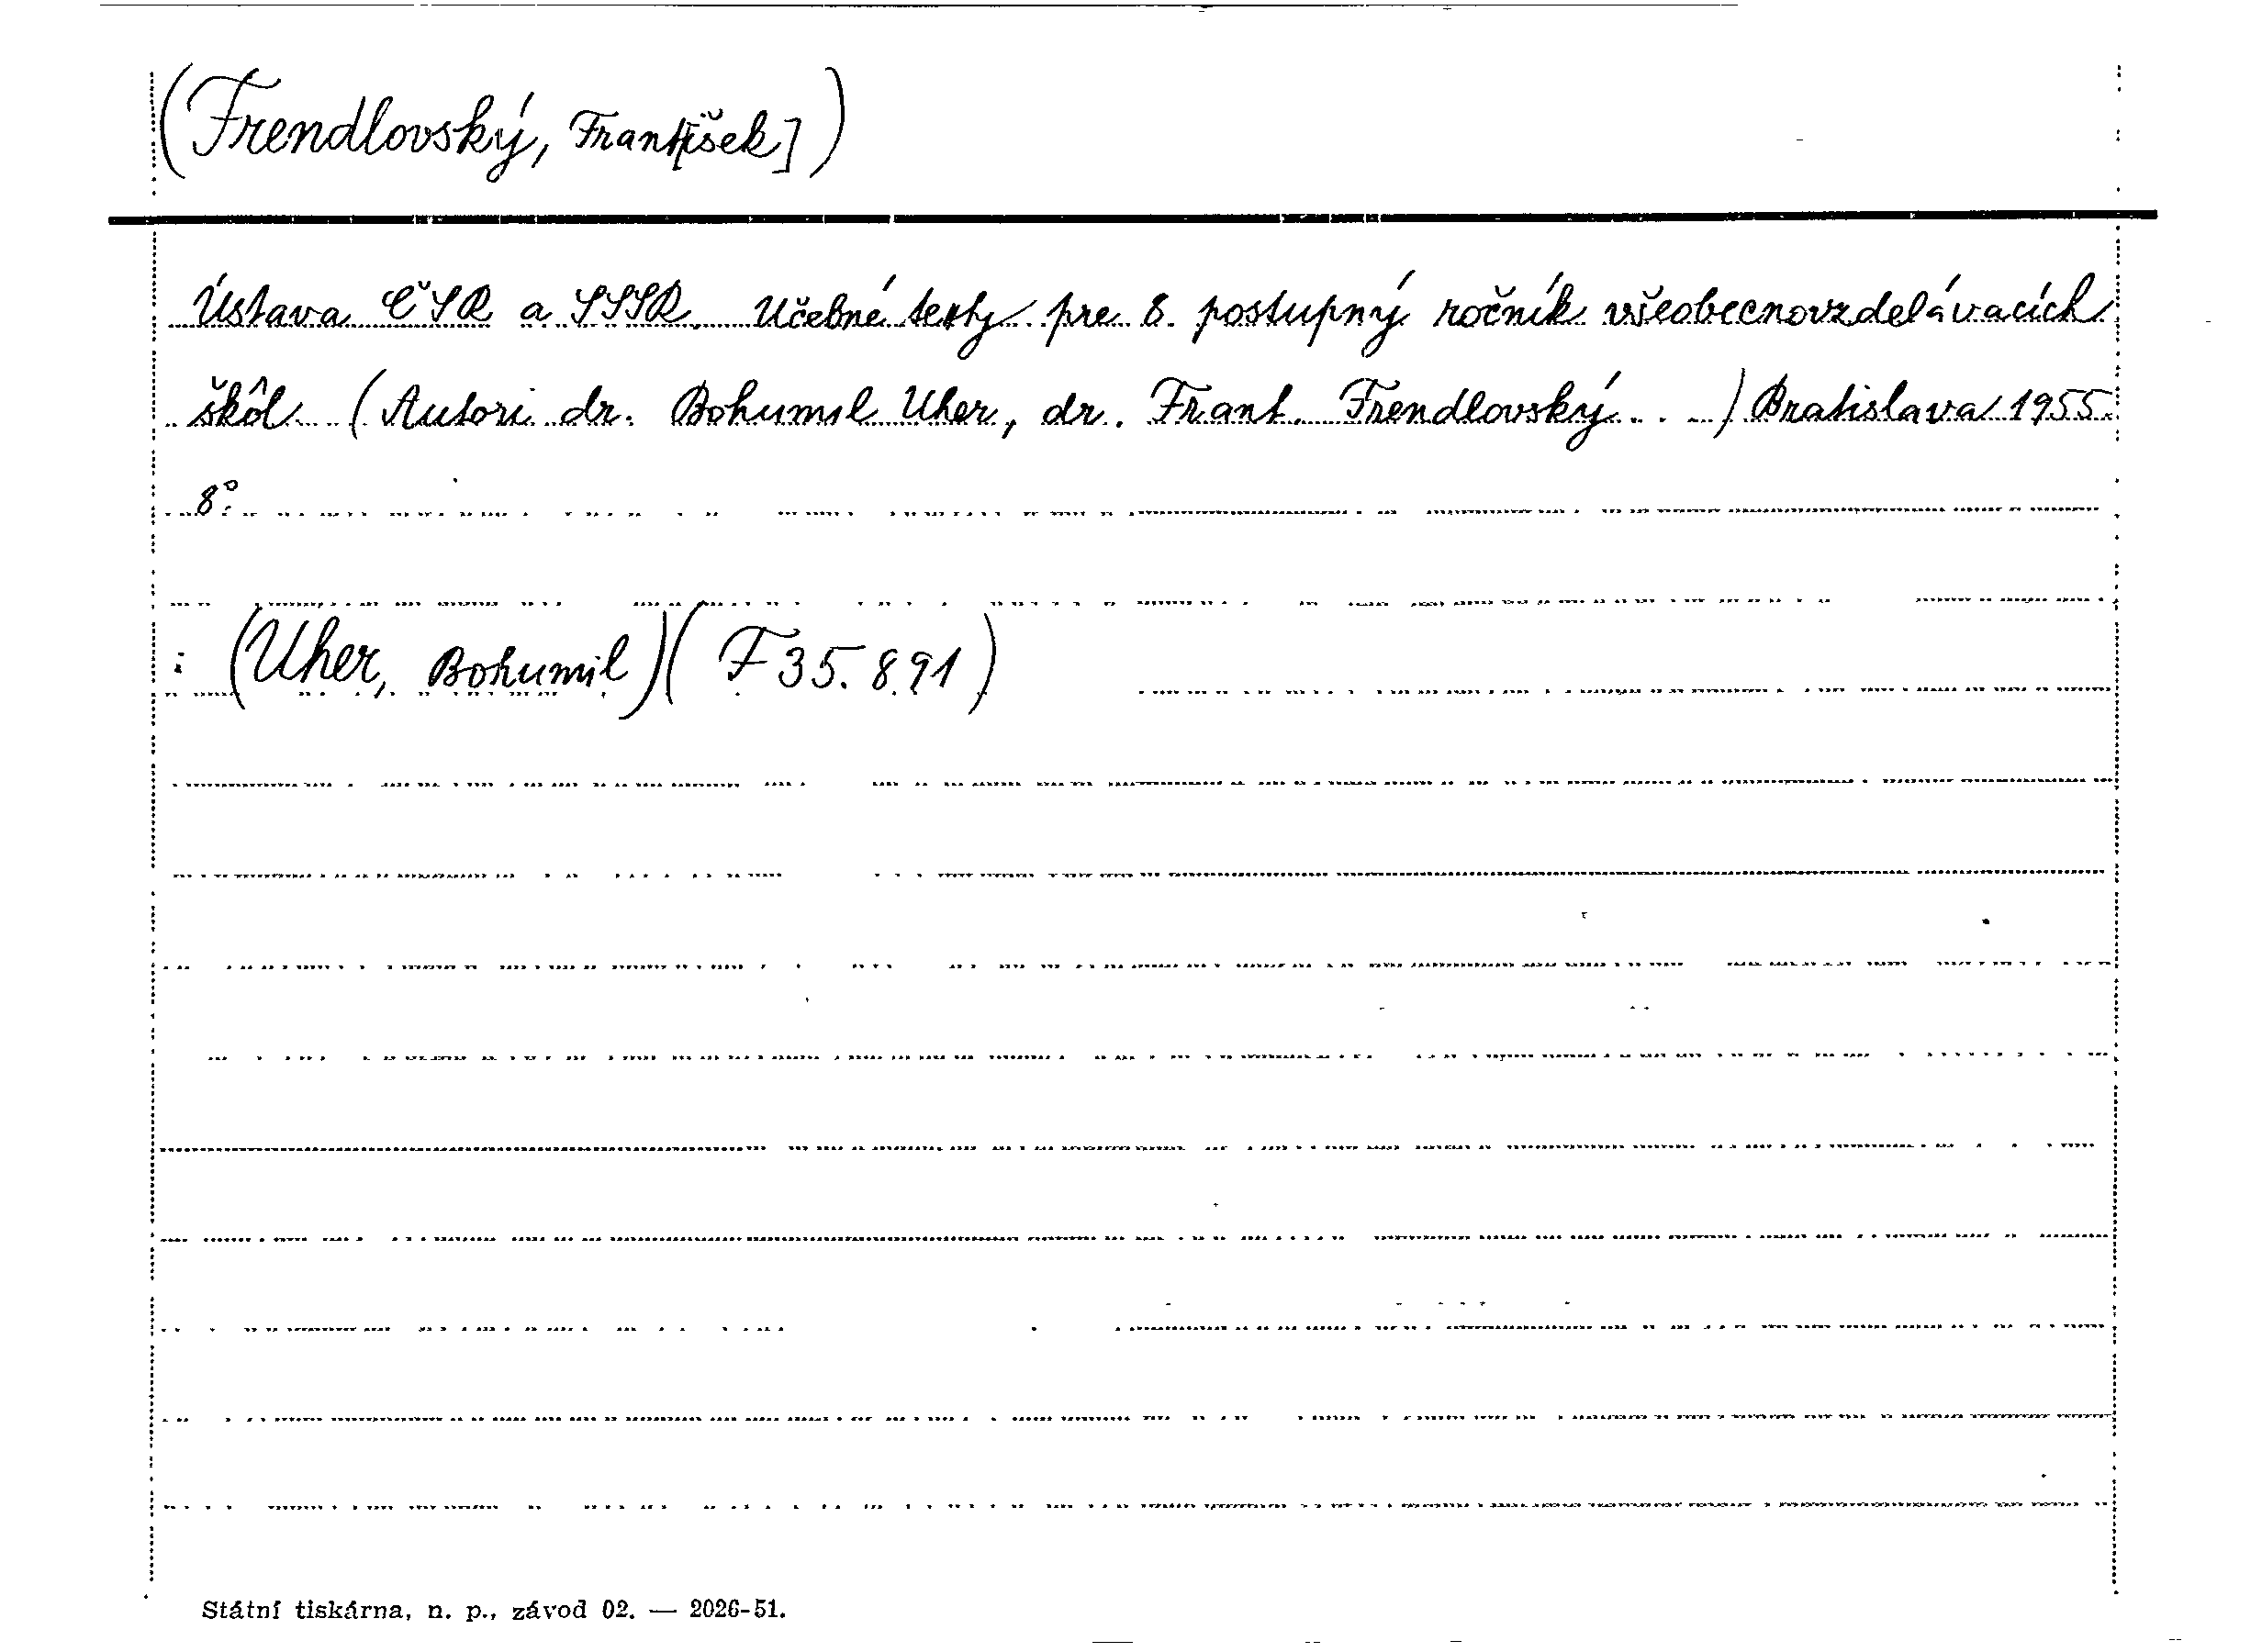 (Frendlovský, Frant[išek])
Ústava ČSR a SSSR. Učebné texty pre 8. postupný ročník všeobecnovzdelávacích
škôl (Autori dr. Bohumil Uher, dr. Frant. Frendlovský . . .) Bratislava 1955
8°.
: (Uher, Bohumil) ( F 35.891 )
Státní tiskárna, n. p., závod 02. — 2026-51.